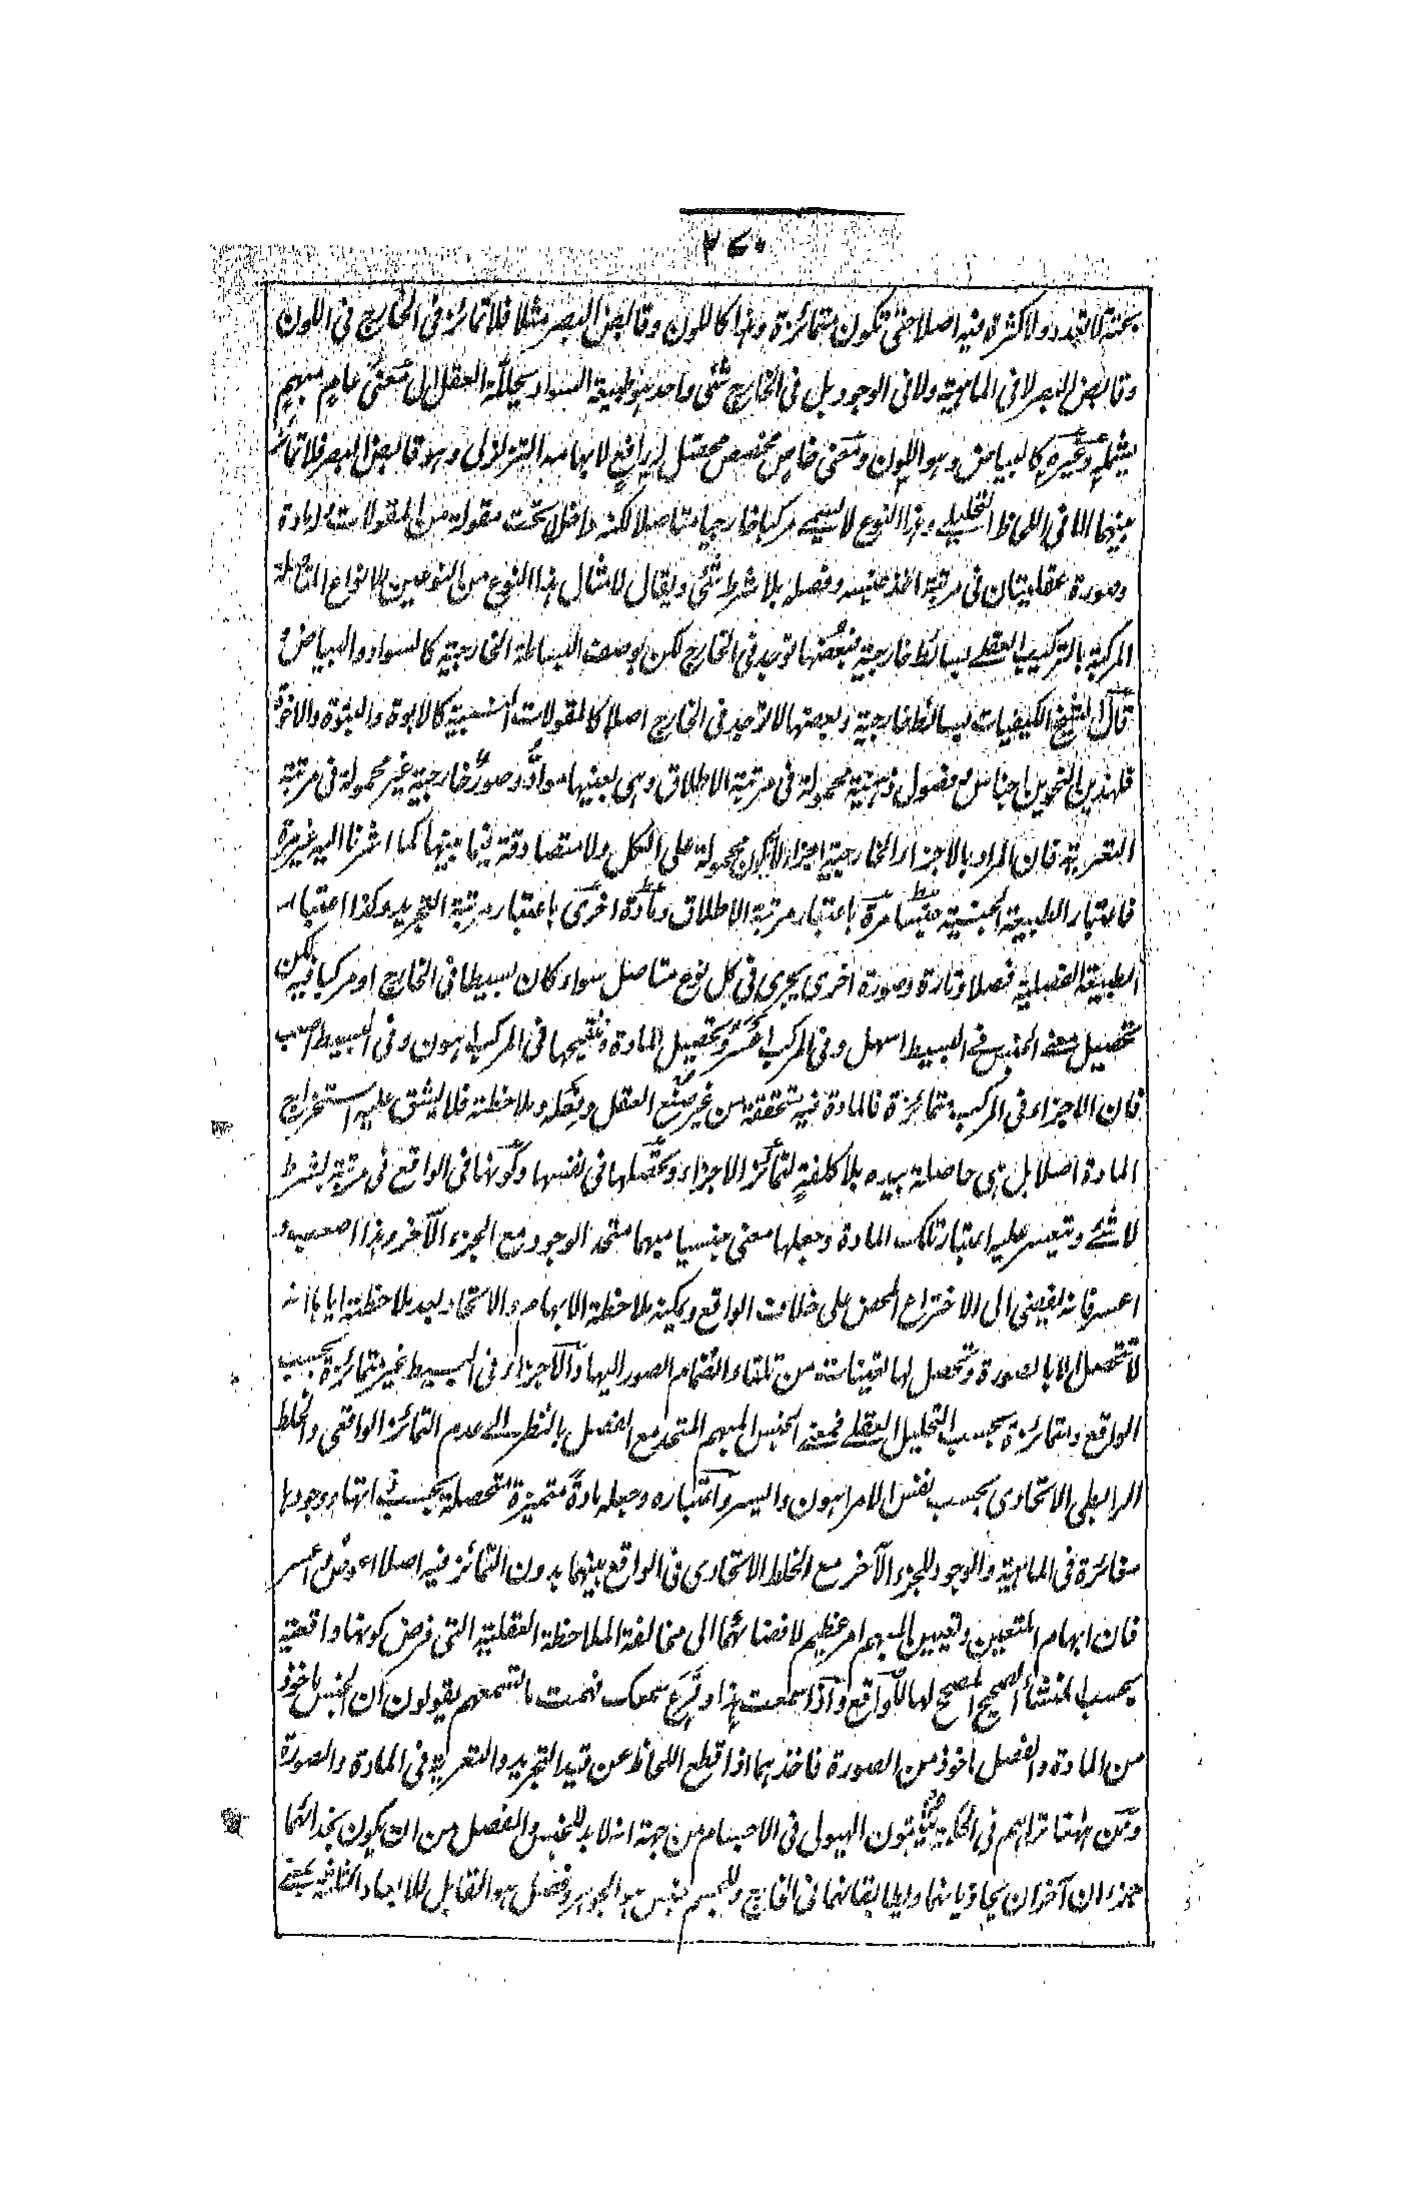 ٢٧٠
بحتة لا تعدد ولا كثرة فيه اصلا حتى تكون متمائزة وهذا كاللون وقابض البصر مثلا فلا تمائز فى الخارج فى اللون
وقابض البصر لا فى الماهية ولا فى الوجود بل فى الخارج شئ واحد هو طبيعة السواد يحلله العقل الى معنى عام مبهم
يشمله وغيره كالبياض وهو اللون ومعنى خاص مخصص محصل له رافع لابهامه التزلزلى وهو قابض البصر فلا تمائز
بينهما الا فى اللحاظ التحليلى وهذا النوع لا يسمى مركبا خارجيا متاصلا لكنه داخلا تحت مقولة من المقولات مادة
وصورة عقليتان فى مرتبة اخذ جنسه وفصله بلا شرط شئ ويقال لامثال هذا النوع من النوعين الانواع
المركبة بالتركيب العقلى بسائط خارجية فبعضها توجد فى الخارج لكن بوصف البساطة الخارجية كالسواد والبياض و
قال الشيخ الكيفيات بسائط خارجية وبعضها لا توجد فى الخارج اصلا كالمقولات النسبية كالابوة والبنوة والاخوة
فلهذين النحوين اجناس مع فصول ذهنية محمولة فى مرتبة الاطلاق وهى بعينها مواد وصور خارجية غير محمولة فى مرتبة
التعرية فان المراد بالاجزاء الخارجية اجزاء لا تكون محمولة على الكل ولا متصادقة فيما بينها كما اشرنا اليه غير مرة
فاعتبار الطبيعة الجنسية جنسا مرة باعتبار مرتبة الاطلاق ومادة اخرى باعتبار مرتبة التجريد وكذا اعتبار
الطبيعة الفصلية فصلا تارة وصورة اخرى يجرى فى كل نوع متاصل سواء كان بسيطا فى الخارج او مركبا فيه لكن
تحصيل معنى الجنس فى البسيط اسهل وفى المركب اعسر وتحصيل المادة وتنقيحها فى المركب اهون وفى البسيط اصعب
فان الاجزاء فى المركب متمائزة فالمادة فيه متحققة من غير صنع العقل وفعله وملاحظته فلا يشق عليه استخراج
المادة اصلا بل هى حاصلة بيده بلا كلفة لتمائز الاجزاء وتحصلها فى نفسها وكونها فى الواقع فى مرتبة بشرط
لا شئ ويتعسر عليه اعتبار تلك المادة وجعلها معنى جنسيا مبهما متحد الوجود مع الجزء الآخر وهذا اصعب و
اعسر فانه يفضى الى الاختراع المحض على خلاف الواقع ويمكنه ملاحظة الابهام والاتحاد بعد ملاحظة اياها انه
لا تتحصل الا بالصورة وتحصل لها تعينات من تلقاء انضمام الصور اليها والاجزاء فى البسيط غير متمائزة بحسب
الواقع ومتمائزة بحسب التحليل العقلى فمعنى الجنس المبهم المتحد مع الفصل بالنظر الى عدم التمائز الواقعى والخلط
الرابطى الاتحادى بحسب نفس الامر اهون وايسر واعتباره وجعله مادة متميزة متحصلة بحسب انتهاء وجودها
مغائرة فى الماهية والوجود للجزء الآخر مع الخلط الاتحادى فى الواقع بينهما بدون التمائز فيه اصلا اعوص واعسر
فان ابهام المتعين وتعيين المبهم امر عظيم لافضائهما الى مخالفة الملاحظة العقلية التى فرض كونها واقعية
بحسب المنشأ الصحيح المصحح لها للواقع واذا سمعت هذا وقرع سمعك فهمت ما تسمعهم يقولون ان الجنس ماخوذ
من المادة والفصل ماخوذ من الصورة فاخذهما اذا قطع اللحاظ عن قيد التجريد والتعرية فى المادة والصورة
ومن ههنا تراهم فى الحكمة يثبتون الهيولى فى الاجسام من جهة انه لا بد للجنس والفصل من ان يكون بحذائهما
جزءان آخران يحاذيانهما ويطابقانهما فى الخارج وللجسم جنس هو الجوهر وفصل هو القابل للابعاد الثلثة يعنى